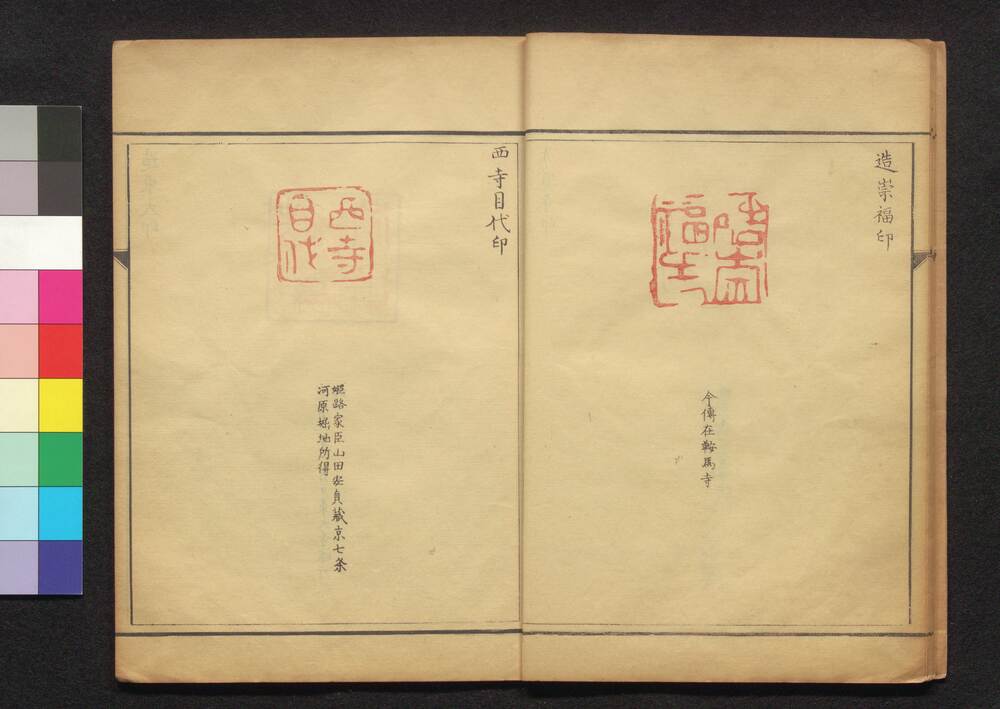 造崇福印
造崇
福印
今傳在鞍馬寺
西寺目代印
西寺
目代
姫路家臣山田安貞藏京七条
河原堀地所得